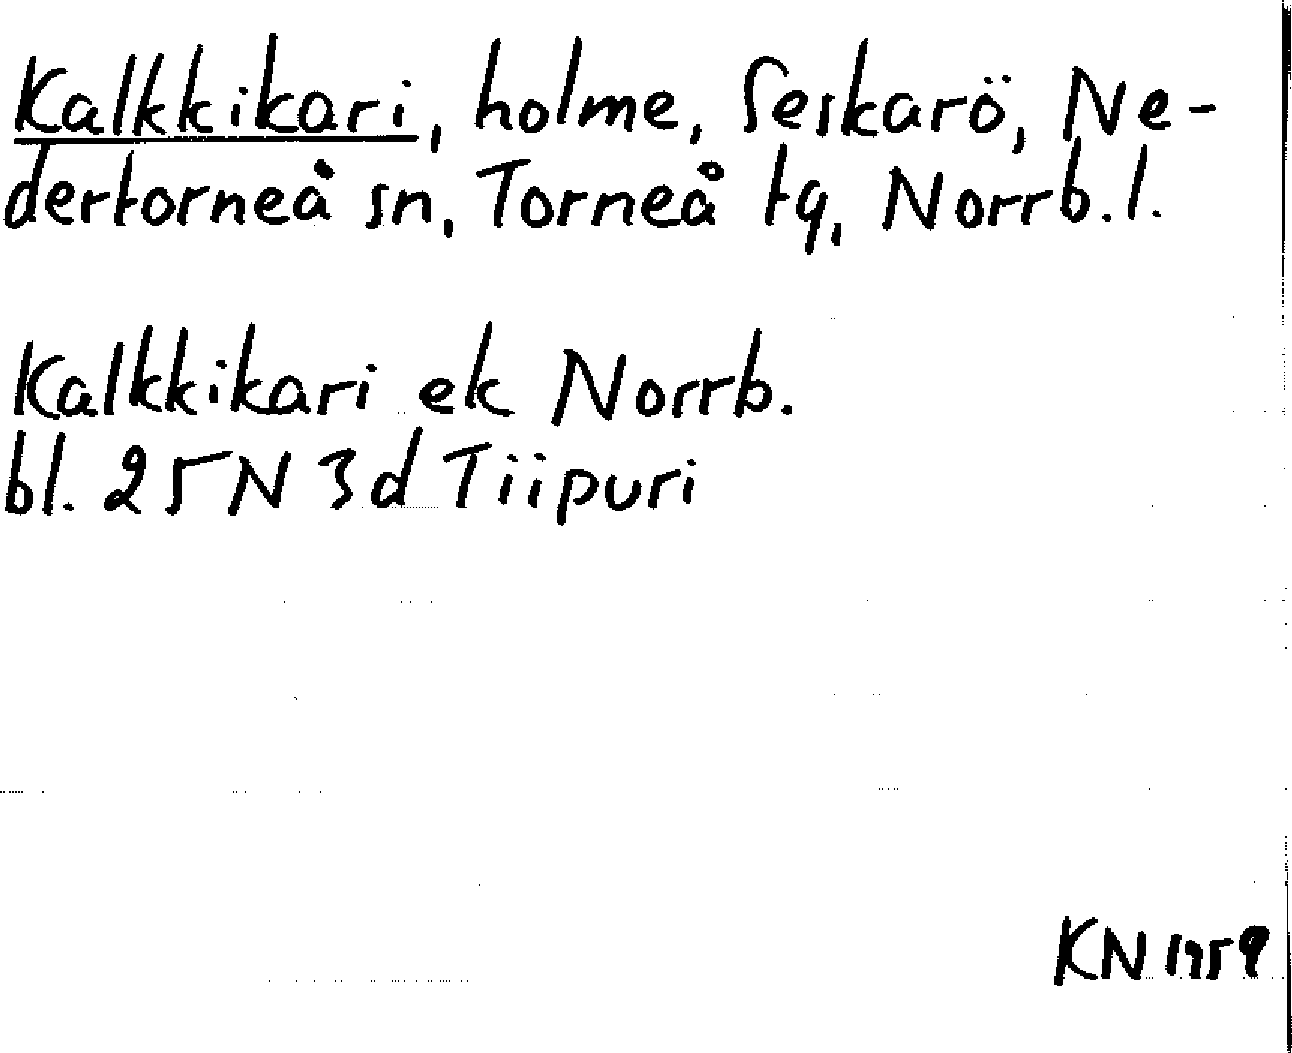 Kalkkikari, holme, Seskarö, Ne-
dertorneå sn, Torneå tg, Norrb.l.
Kalkkikari ek Norrb.
bl. 25N 3d Tiipuri
KN 1959